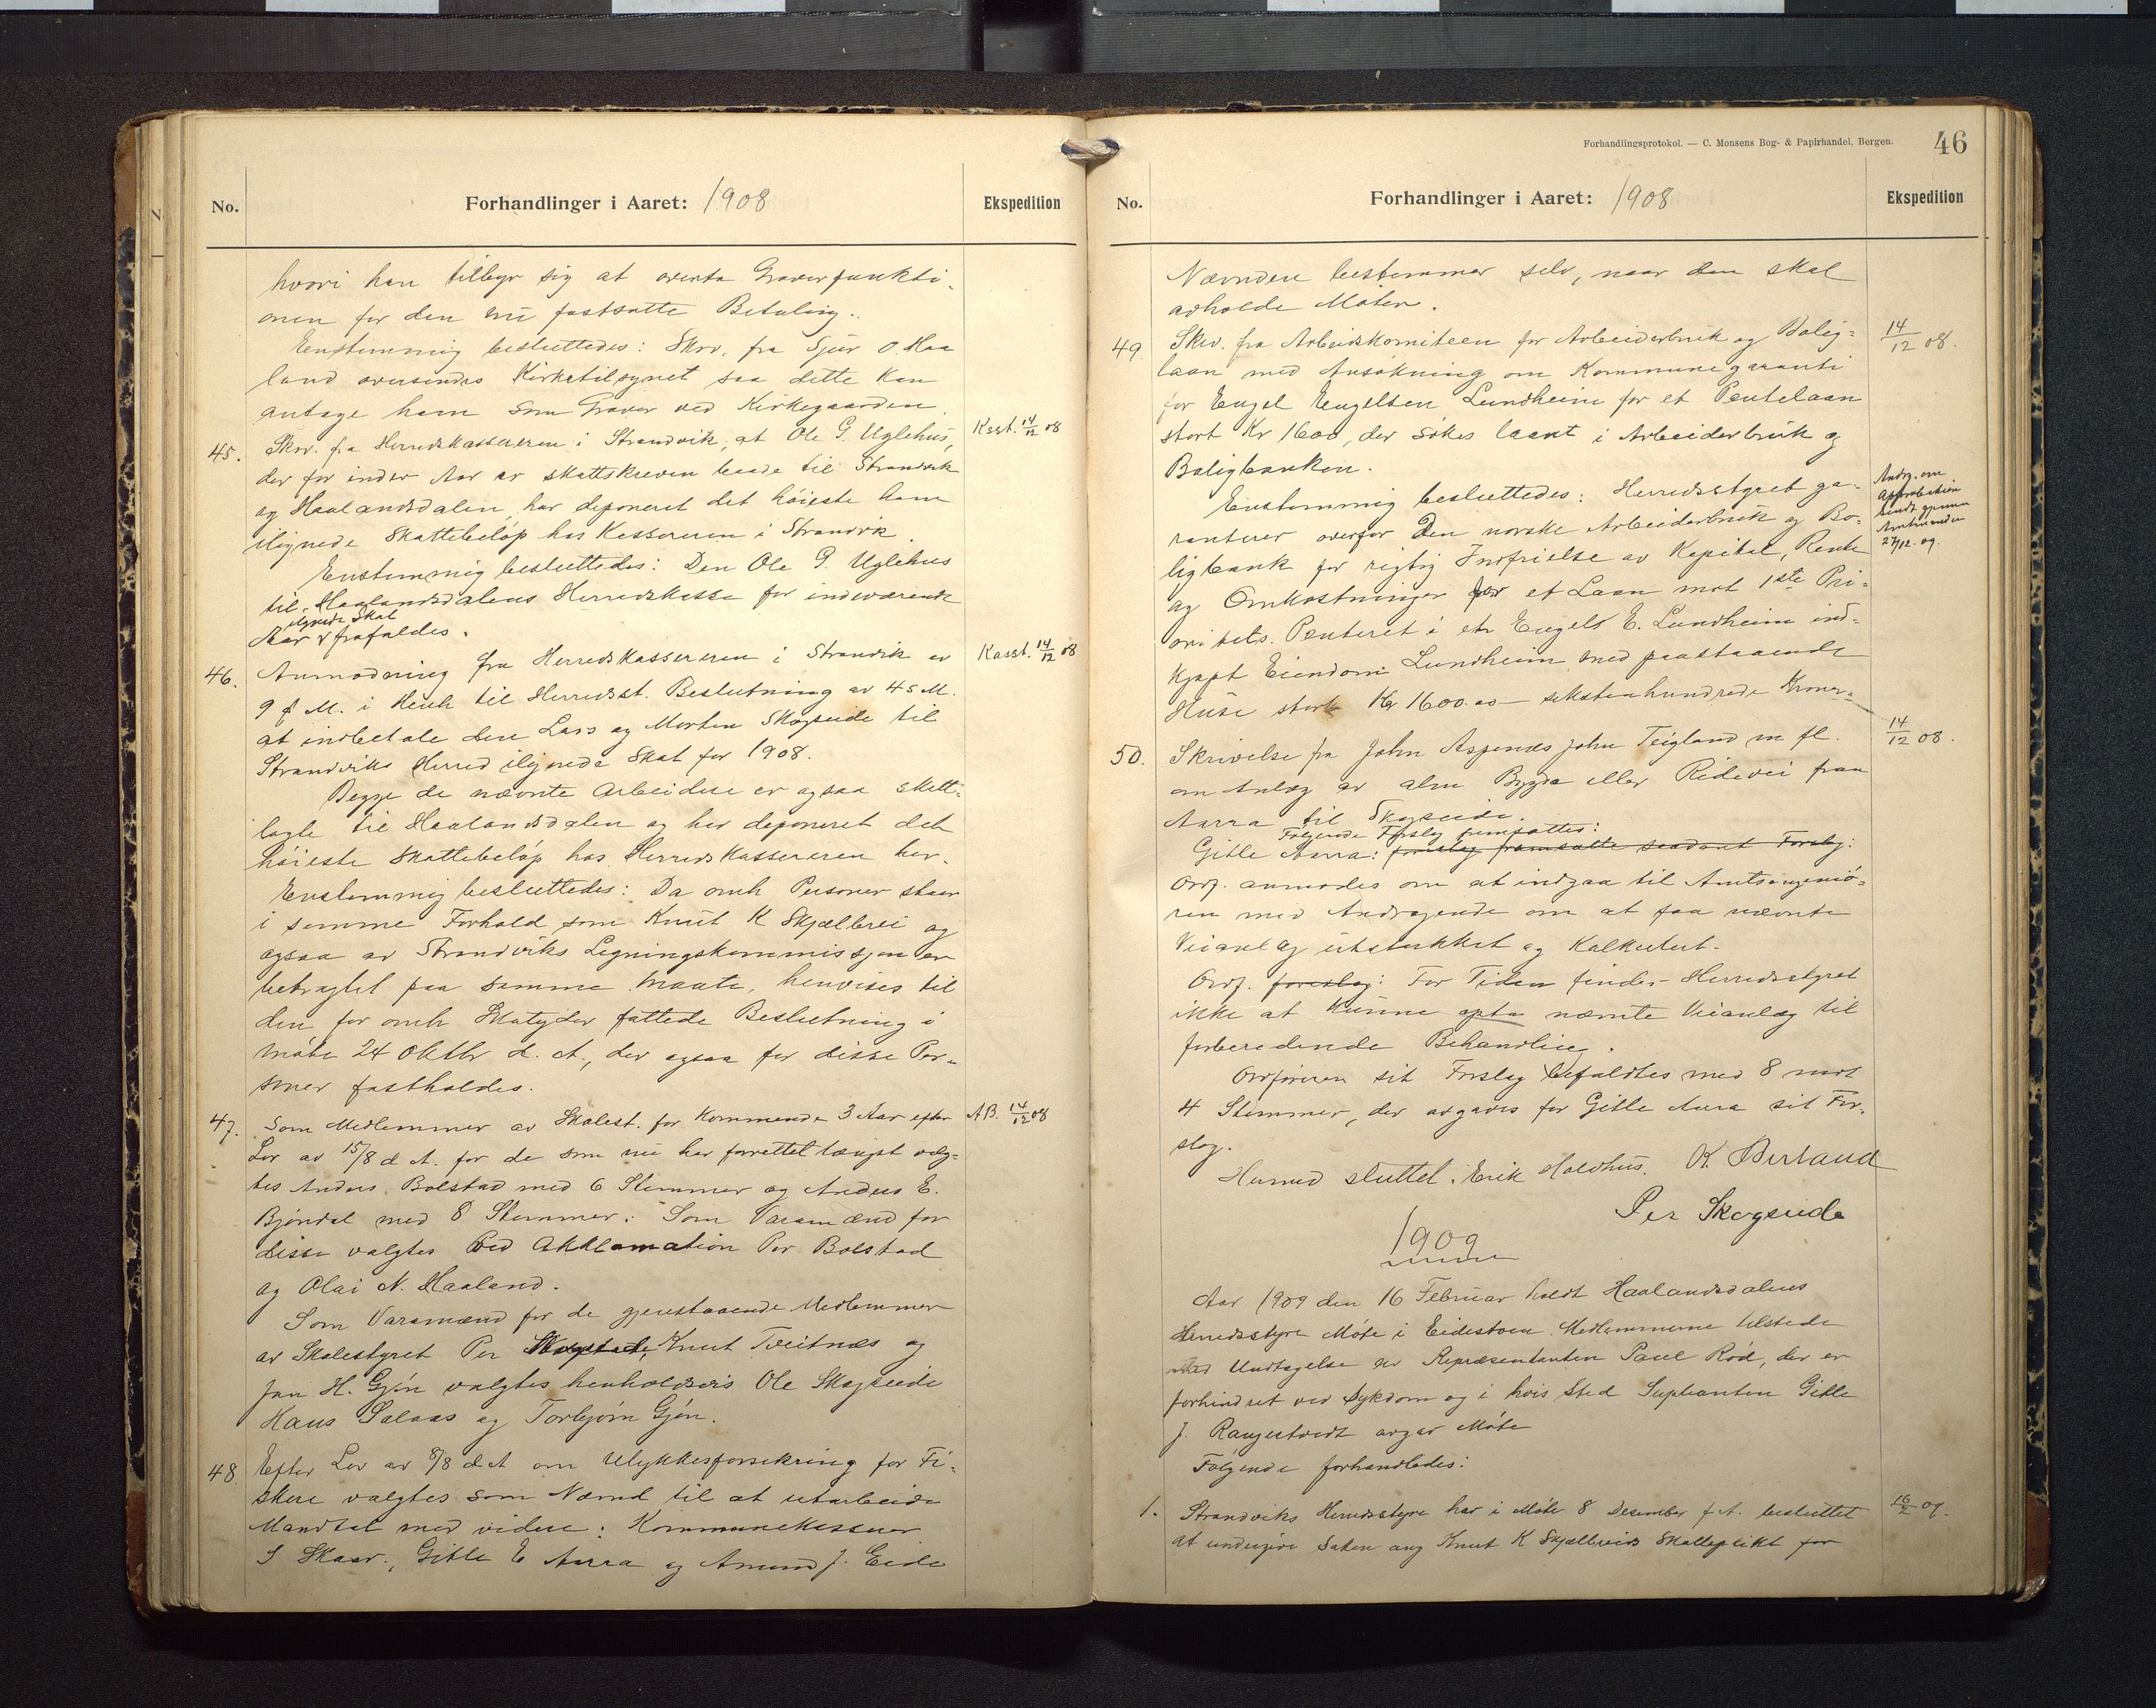 No.
Forhandlinger i Aaret: 1908
Ekspedition
hvori han tilbyr sig at overta Graverfunkti-
onen for den nu fastsatte Betaling.
Enstemmig besluttedes: Skrv. fra Sjur O. Haa
land oversendes Kirketilsynet saa dette kan
antage ham som Graver ved Kirkegaarden.
45. Skrv. fra Herredskassereren i Strandvik, at Ole G. Uglehus, Ksst. 14/12 08
der for indev Aar er skattskreven baade til Strandvik
og Haalandsdalen, har deponeret det høieste ham
ilignede Skattebeløp hos Kassereren i Strandvik.
Enstemmig besluttedes: Den Ole G. Uglehus
til Haalandsdalens Herredskasse for indeværende
ilignede Skat
Aar frafaldes.
46. Anmodning fra Herredskassereren i Strandvik av Kasst. 14/12 08
9 f M. i Henh til Herredsst. Beslutning av 45 M.
at indbetale den Lars og Morten Skogseide til
Strandviks Herred ilignede Skat for 1908.
Begge de nævnte Arbeidere er ogsaa skatt-
lagte til Haalandsdalen og har deponeret det
høieste Skattebeløp hos Herredskassereren her.
Enstemmig besluttedes: Da omh Personer staar
i samme Forhold som Knut K Skjælbrei og
ogsaa av Strandviks Ligningskommissjon er
betragtet paa samme Maate, henvises til
den for omh Skatyder fattede Beslutning i
Møte 24 Oktbr d. A., der ogsaa for disse Per-
soner fastholdes.
47. Som Medlemmer av Skolest. for kommende 3 Aar efter AB. 14/12 08
Lov av 15/8 d A. for de som nu har forrettet længst valg-
tes Anders Bolstad med 6 Stemmer og Anders E.
Bjøndal med 8 Stemmer. Som Varamænd for
disse valgtes ved Akklamation Per Bolstad
og Olai N. Haaland.
Som Varamænd for de gjenstaaende Medlemmer
av Skolestyret Per Skogseide, Knut Tveitnæs og
Jan H. Gjøn valgtes henholdsvis Ole Skogseide
Hans Salaas og Torbjørn Gjøn.
48. Efter Lov av 8/8 d A om Ulykkesforsikring for Fi-
skere valgtes som Nævnd til at utarbeide
Mandtal med videre: Kommunekasserer
S Skaar, Gitle E Aarra og Amund J. Eide
Forhandlingsprotokol. — C. Monsens Bog- & Papirhandel, Bergen.
46
No.
Forhandlinger i Aaret: 1908
Ekspedition
Nævnden bestemmer selv, naar den skal
avholde Møter.
49. Skrv. fra Arbeidskomiteen for Arbeiderbruk og Bolig- 14/12 08.
laan med Ansøkning om Kommunegaranti
for Engel Engelsen Lundheim for et Pantelaan
stort Kr 1600, der søkes laant i Arbeiderbruk og
Boligbanken.
Enstemmig besluttedes: Herredsstyret ga-
ranterer overfor Den norske Arbeiderbruk og Bo-
ligbank for rigtig Indfrielse av Kapital, Rente
og Omkostninger for et Laan mot 1ste Pri-
oritets Panteret i en Engels E. Lundheim ind-
kjøpt Eiendom Lundheim med paastaaende
Huse stort Kr 1600.00 – sekstenhundrede Kroner
Andrg. om
Approbation
sendt gjennem
Amtmanden
27/12. 09.
50. Skrivelse fra John Aspenæs John Teigland m fl. 14/12 08.
om Anlæg av alm Bygde eller Ridevei fraa
Aarra til Skogseide.
Følgende Forslag fremsattes:
Gitle Aarra: foreslog fremsatte saadant Forslag:
Ordf. anmodes om at indgaa til Amtsingeniø-
ren med Andragende om at faa nævnte
Veianlæg utstukket og kalkulert.
Ordf. foreslog: For Tiden finder Herredsstyret
ikke at kunne opta nævnte Veianlæg til
forberedende Behandling.
Ordføreren sit Forslag bifaldtes med 8 mot
4 Stemmer, der avgaves for Gitle Aarra sit For-
slag.
Hermed sluttet. Erik Holdhus. K. Berland
Per Skogseide
1909
Aar 1909 den 16 Februar holdt Haalandsdalens
Herredsstyre Møte i Eidestøen. Medlemmerne tilstede
med Undtagelse av Repræsentanten Paul Rød, der er
forhindret ved Sykdom og i hvis Sted Supleanten Gitle
J. Rangestvedt avgav Møte
Følgende forhandledes:
1. Strandviks Herredsstyre har i Møte 8 Desember f A. besluttet 16/2 09.
at undergive Saken ang Knut K Skjælbreids Skatteplikt for